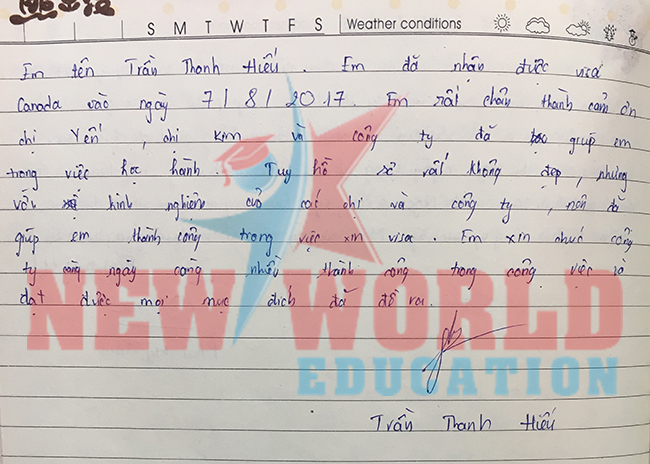 S M T W T F S Weather conditions
Em tên Trần Thanh Hiếu. Em đã nhận được visa
Canada vào ngày 7/8/2017. Em rất chân thành cảm ơn
chị Yến, chị Kim và công ty đã giúp em
trong việc học hành. Tuy hồ sơ rất không đẹp, nhưng
với kinh nghiệm của các chị và công ty, nên đã
giúp em thành công trong việc xin visa. Em xin chúc công
ty càng ngày càng nhiều thành công trong công việc và
đạt được mọi mục đích đã đề ra.
NEW WORLD
EDUCATION
Trần Thanh Hiếu